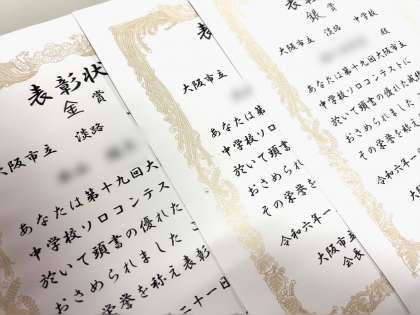 表彰状
金賞
大阪市立 淡路
あなたは第十九回大
中学校ソロコンテス
於いて頭書の優れた
おさめられました こ
栄誉を称え表彰
二十一日
表
大阪市立
あなたは第
中学校ソロ
於いて頭書
おさめられ
その栄誉を
令和六年一
大阪市立
会長
表彰
銀賞
大阪市立 淡路 中学校
殿
あなたは第十九回大阪市立
中学校ソロコンテストに
於いて頭書の優れた
おさめられました
その栄誉を称え
令和六年一
大阪市
会長